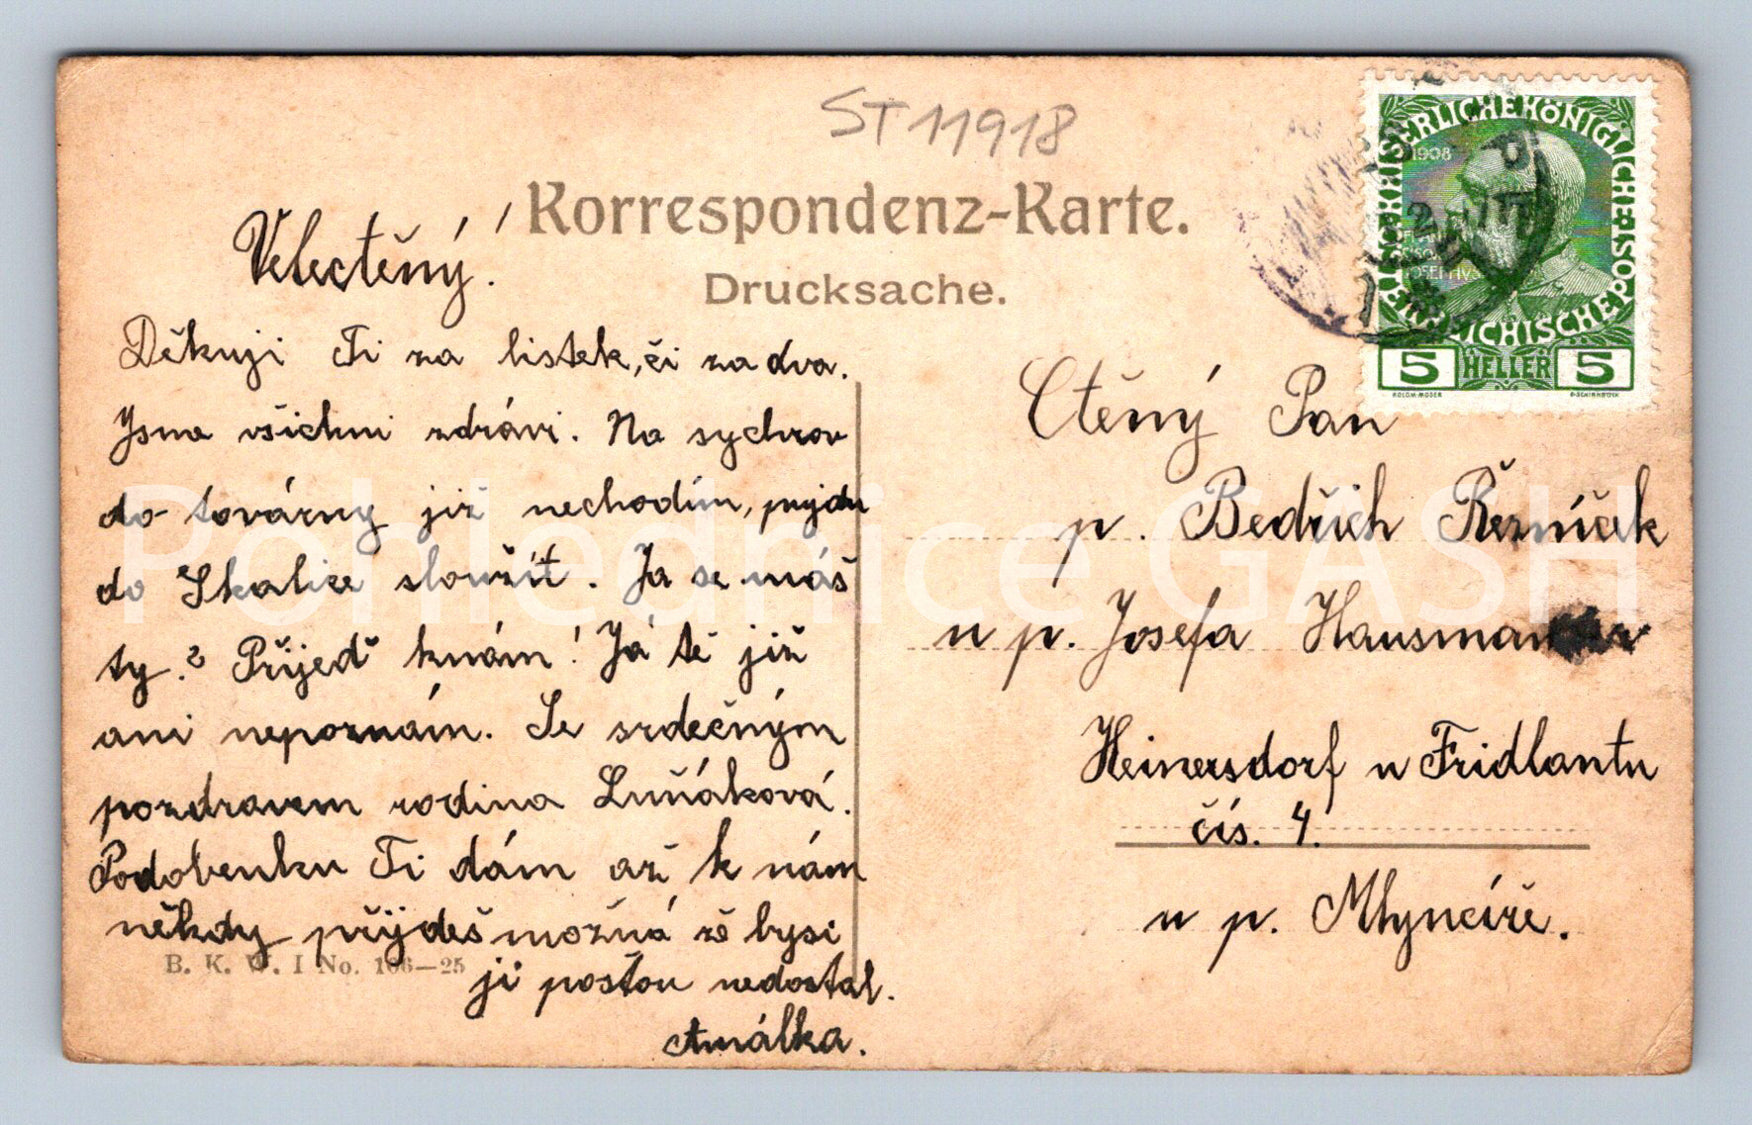 ST 11918
Korrespondenz-Karte.
Drucksache.
Velectěný!
Děkuji Ti za listek, či za dva.
Jsme všichni zdrávi. Na sychrov
do továrny již nechodím, pujdu
do Skalice sloužit. Ja se máš
ty? Přijeď knám! Já tě již
ani nepoznám. Se srdečným
pozdravem rodina Luňáková.
Podobenku Ti dám až k nám
někdy přijdeš možná žě bysi
ji poštou nedostal.
Amálka.
B. K. W. I No. 106—25
KAISERLICHE KÖNIGLICHE ÖSTERREICHISCHE POST
1908
5 HELLER 5
KOLOM·MOSER
F·SCHIRNBÖCK
Ctěný Pan
p. Bedřich Řezníček
u p. Josefa Hausmana
Heinersdorf u Fridlantu
čís. 4.
u p. Mlynčíře.
Pohlednice GASH